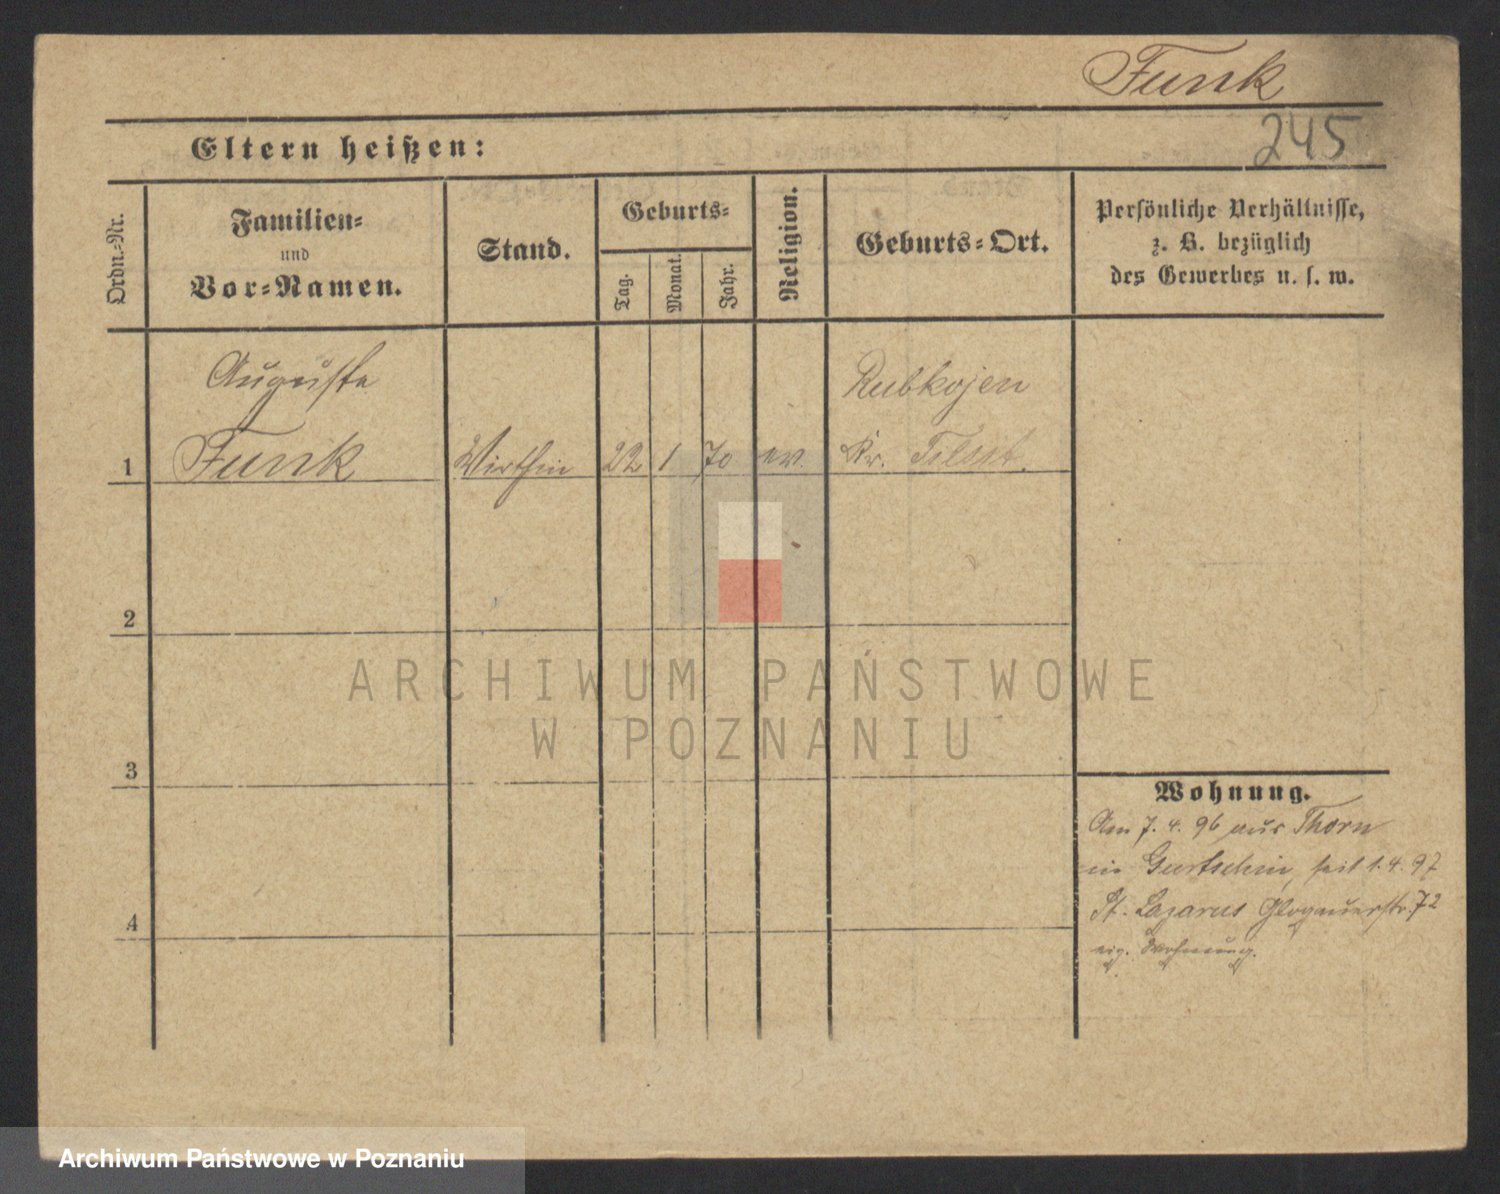 Funk
245
Eltern heißen:
Ordn.-Nr.
Familien-
und
Vor-Namen.
Stand.
Geburts-
Tag.
Monat.
Jahr.
Religion.
Geburts-Ort.
Persönliche Verhältnisse,
z. B. bezüglich
des Gewerbes u. s. w.
Auguste
Rubkojen
1 Funk Wirthin 22 1 70 ev. Kr. Tilsit.
2
3
4
Wohnung.
Am 7. 4. 96 aus Thorn
in Gurtschin, seit 1. 4. 97
St. Lazarus Glogauerstr. 72
eig. Wohnung.
ARCHIWUM PAŃSTWOWE
W POZNANIU
Archiwum Państwowe w Poznaniu